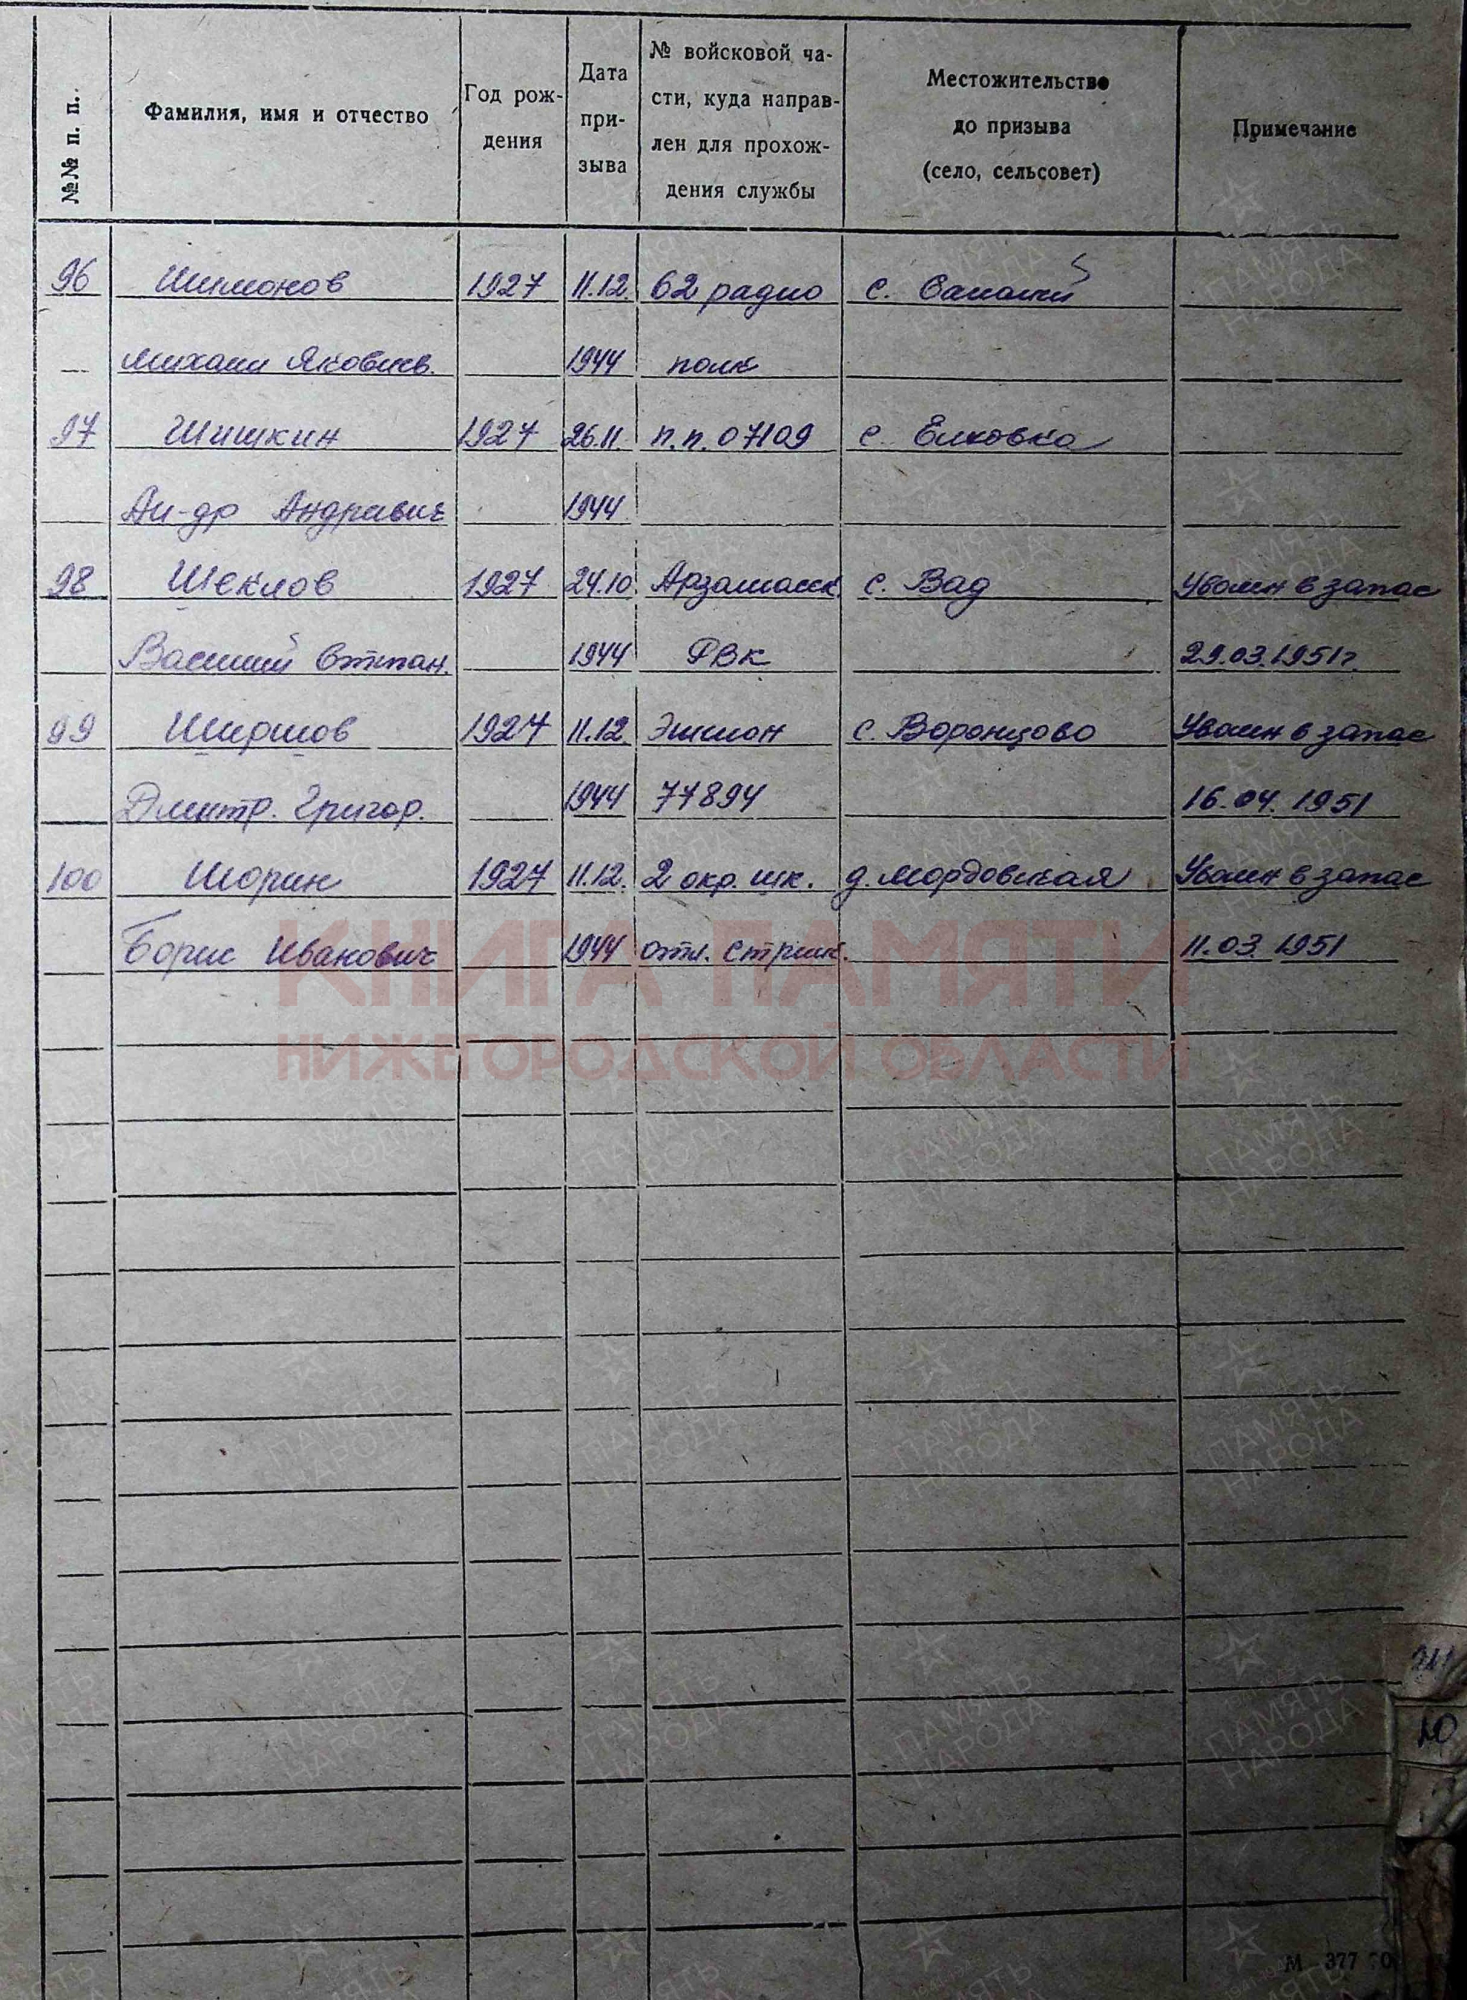 №№ п. п.
Фамилия, имя и отчество
Год рож-
дения
Дата
при-
зыва
№ войсковой ча-
сти, куда направ-
лен для прохож-
дения службы
Местожительство
до призыва
(село, сельсовет)
Примечание
96 Шимонов 1927 11.12. 62 радио с.
Михаил Яковлев. 1944 полк
97 Шишкин 1927 26.11. п.п. 07109 с. Елховка
Ал-др Андравич 1944
98 Шеклов 1927 24.10. Арзамасск. с. Вад Уволен в запас
Василий Степан. 1944 РВК 29.03.1951г.
99 Ширшов 1927 11.12. Эшелон с. Воронцово Уволен в запас
Дмитр. Григор. 1944 77894 16.04.1951
100 Шорин 1927 11.12. 2 окр. шк. д. Мордовская Уволен в запас
Борис Иванович 1944 отл. стрелк. 11.03.1951
КНИГА ПАМЯТИ
НИЖЕГОРОДСКОЙ ОБЛАСТИ
ПАМЯТЬ
НАРОДА
М 377